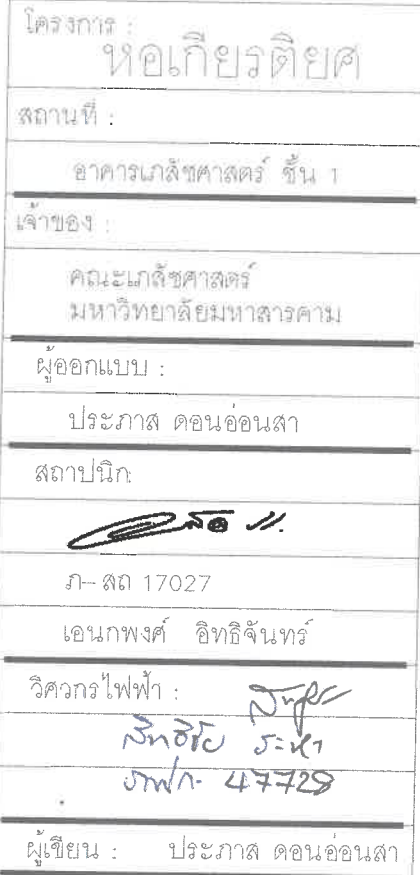 โครงการ :
หอเกียรติยศ
สถานที่ :
อาคารเภสัชศาสตร์ ชั้น 1
เจ้าของ :
คณะเภสัชศาสตร์
มหาวิทยาลัยมหาสารคาม
ผู้ออกแบบ :
ประภาส ดอนอ่อนสา
สถาปนิก:
ภ-สถ 17027
เอนกพงศ์ อิทธิจันทร์
วิศวกรไฟฟ้า :
สิทธิชัย ระหา
ภฟก. 47728
ผู้เขียน : ประภาส ดอนอ่อนสา